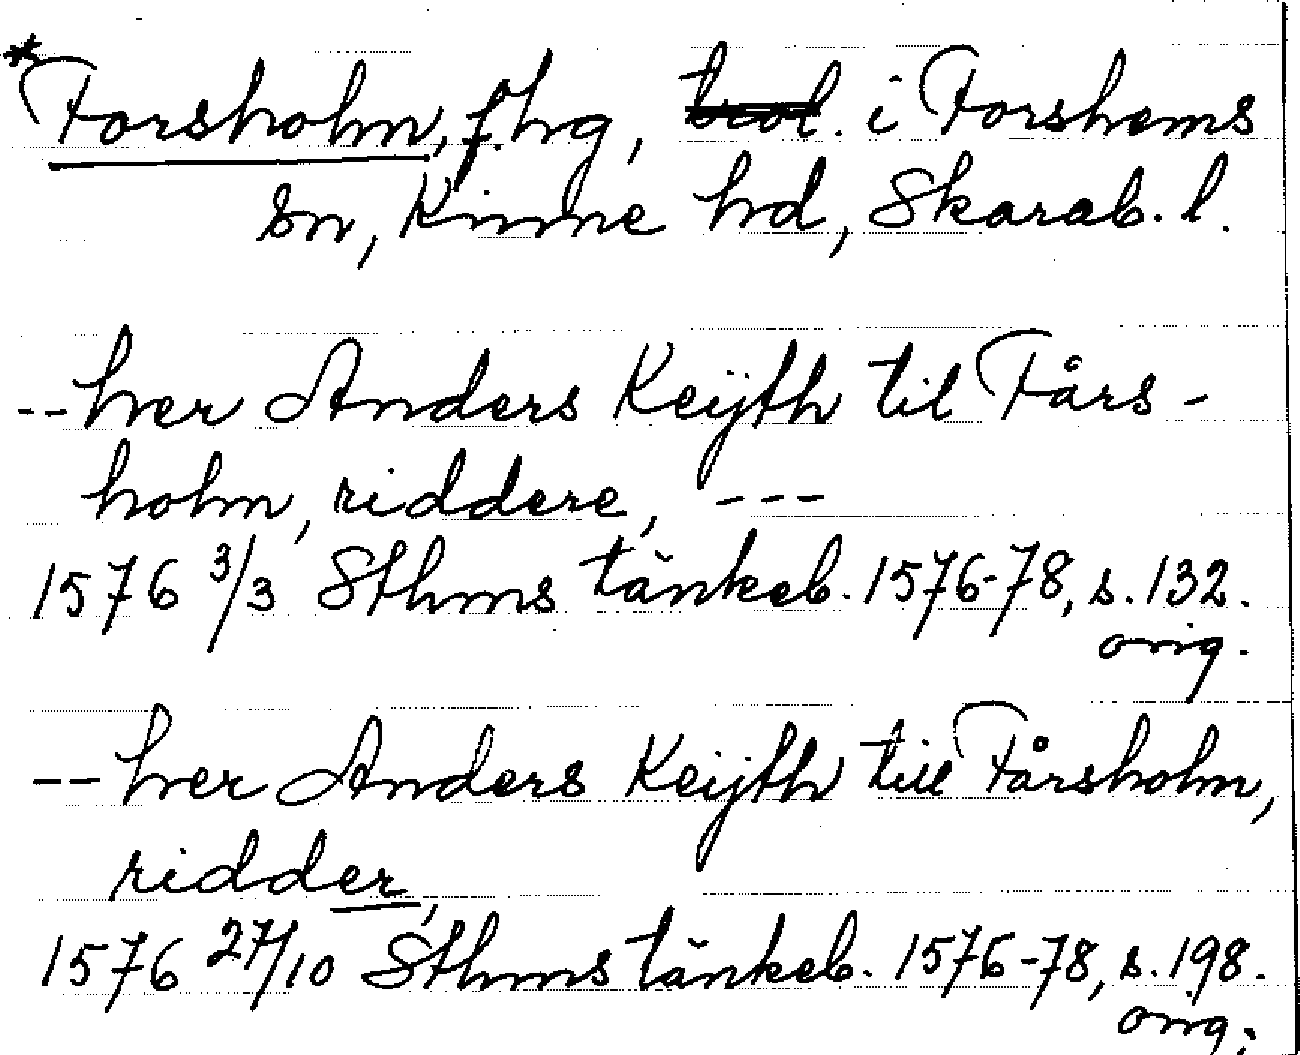 *Forsholm, f. hg, i Forshems
sn, Kinne hd, Skarab. l.
--her Anders Keijth til Fårs-
holm, riddere, ---
1576 3/3 Sthms tänkeb. 1576-78, s. 132.
orig.
--her Anders Keijth till Fårsholm,
ridder,
1576 27/10 Sthms tänkeb. 1576-78, s. 198.
orig.